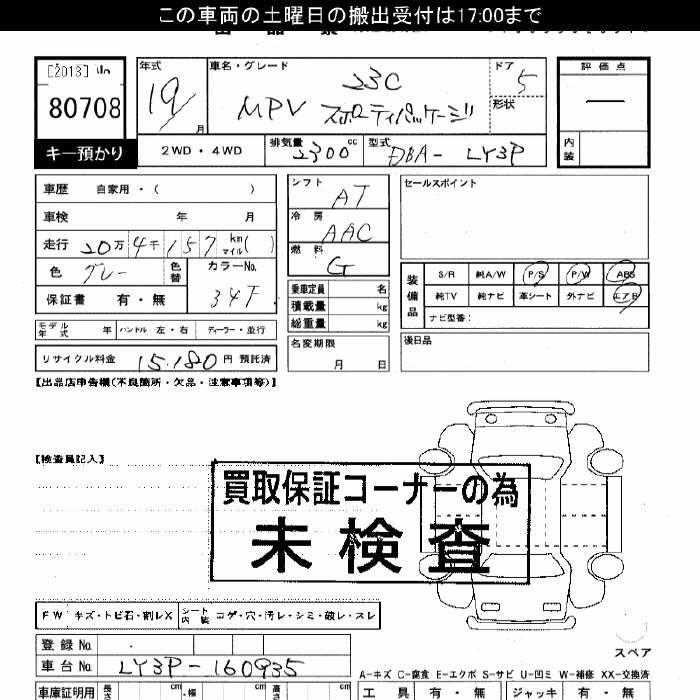 この車両の土曜日の搬出受付は17:00まで
[2013]
80708
キー預かり
年式
19
月
車名・グレード
23C
MPV スポーティパッケージ
ドア
5
形状
評価点
内装
2WD・4WD
排気量
2300
cc
型式
DBA-LY3P
車歴 自家用・( )
車検 年 月
走行 20万4千157 km マイル( )
色
グレー
色替
カラーNo.
34F
保証書 有・無
シフト
AT
冷房
AAC
燃料
G
セールスポイント
装備品
S/R 純A/W P/S P/W ABS
純TV 純ナビ 革シート 外ナビ エアB
ナビ型番:
乗車定員 名
積載量 kg
総重量 kg
モデル年式 年 ハンドル 左・右 ディーラー・並行
名変期限
月 日
後日品
リサイクル料金 15,180 円 預託済
【出品店申告欄(不良箇所・欠品・注意事項等)】
【検査員記入】
買取保証コーナーの為
未検査
FW キズ・トビ石・割レX シート内装 コゲ・穴・汚レ・シミ・破レ・スレ
登録No.
スペア
車台No. LY3P-160935
A-キズ C-腐食 E-エクボ S-サビ U-凹ミ W-補修 XX-交換済
車庫証明用 長さ cm 幅 cm 高さ cm
工具 有・無 ジャッキ 有・無